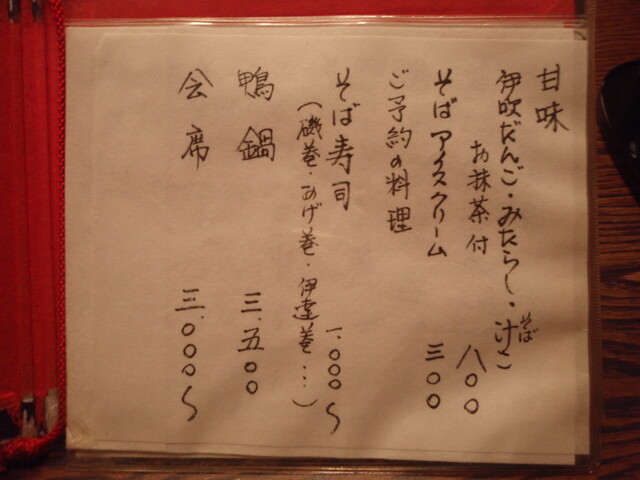 甘味
伊吹だんご・みたらし・そば汁こ
お抹茶付 八〇〇
そばアイスクリーム 三〇〇
ご予約の料理
そば寿司 一、〇〇〇～
(磯巻・あげ巻・伊達巻・・・)
鴨鍋 三、五〇〇
会席 三、〇〇〇～